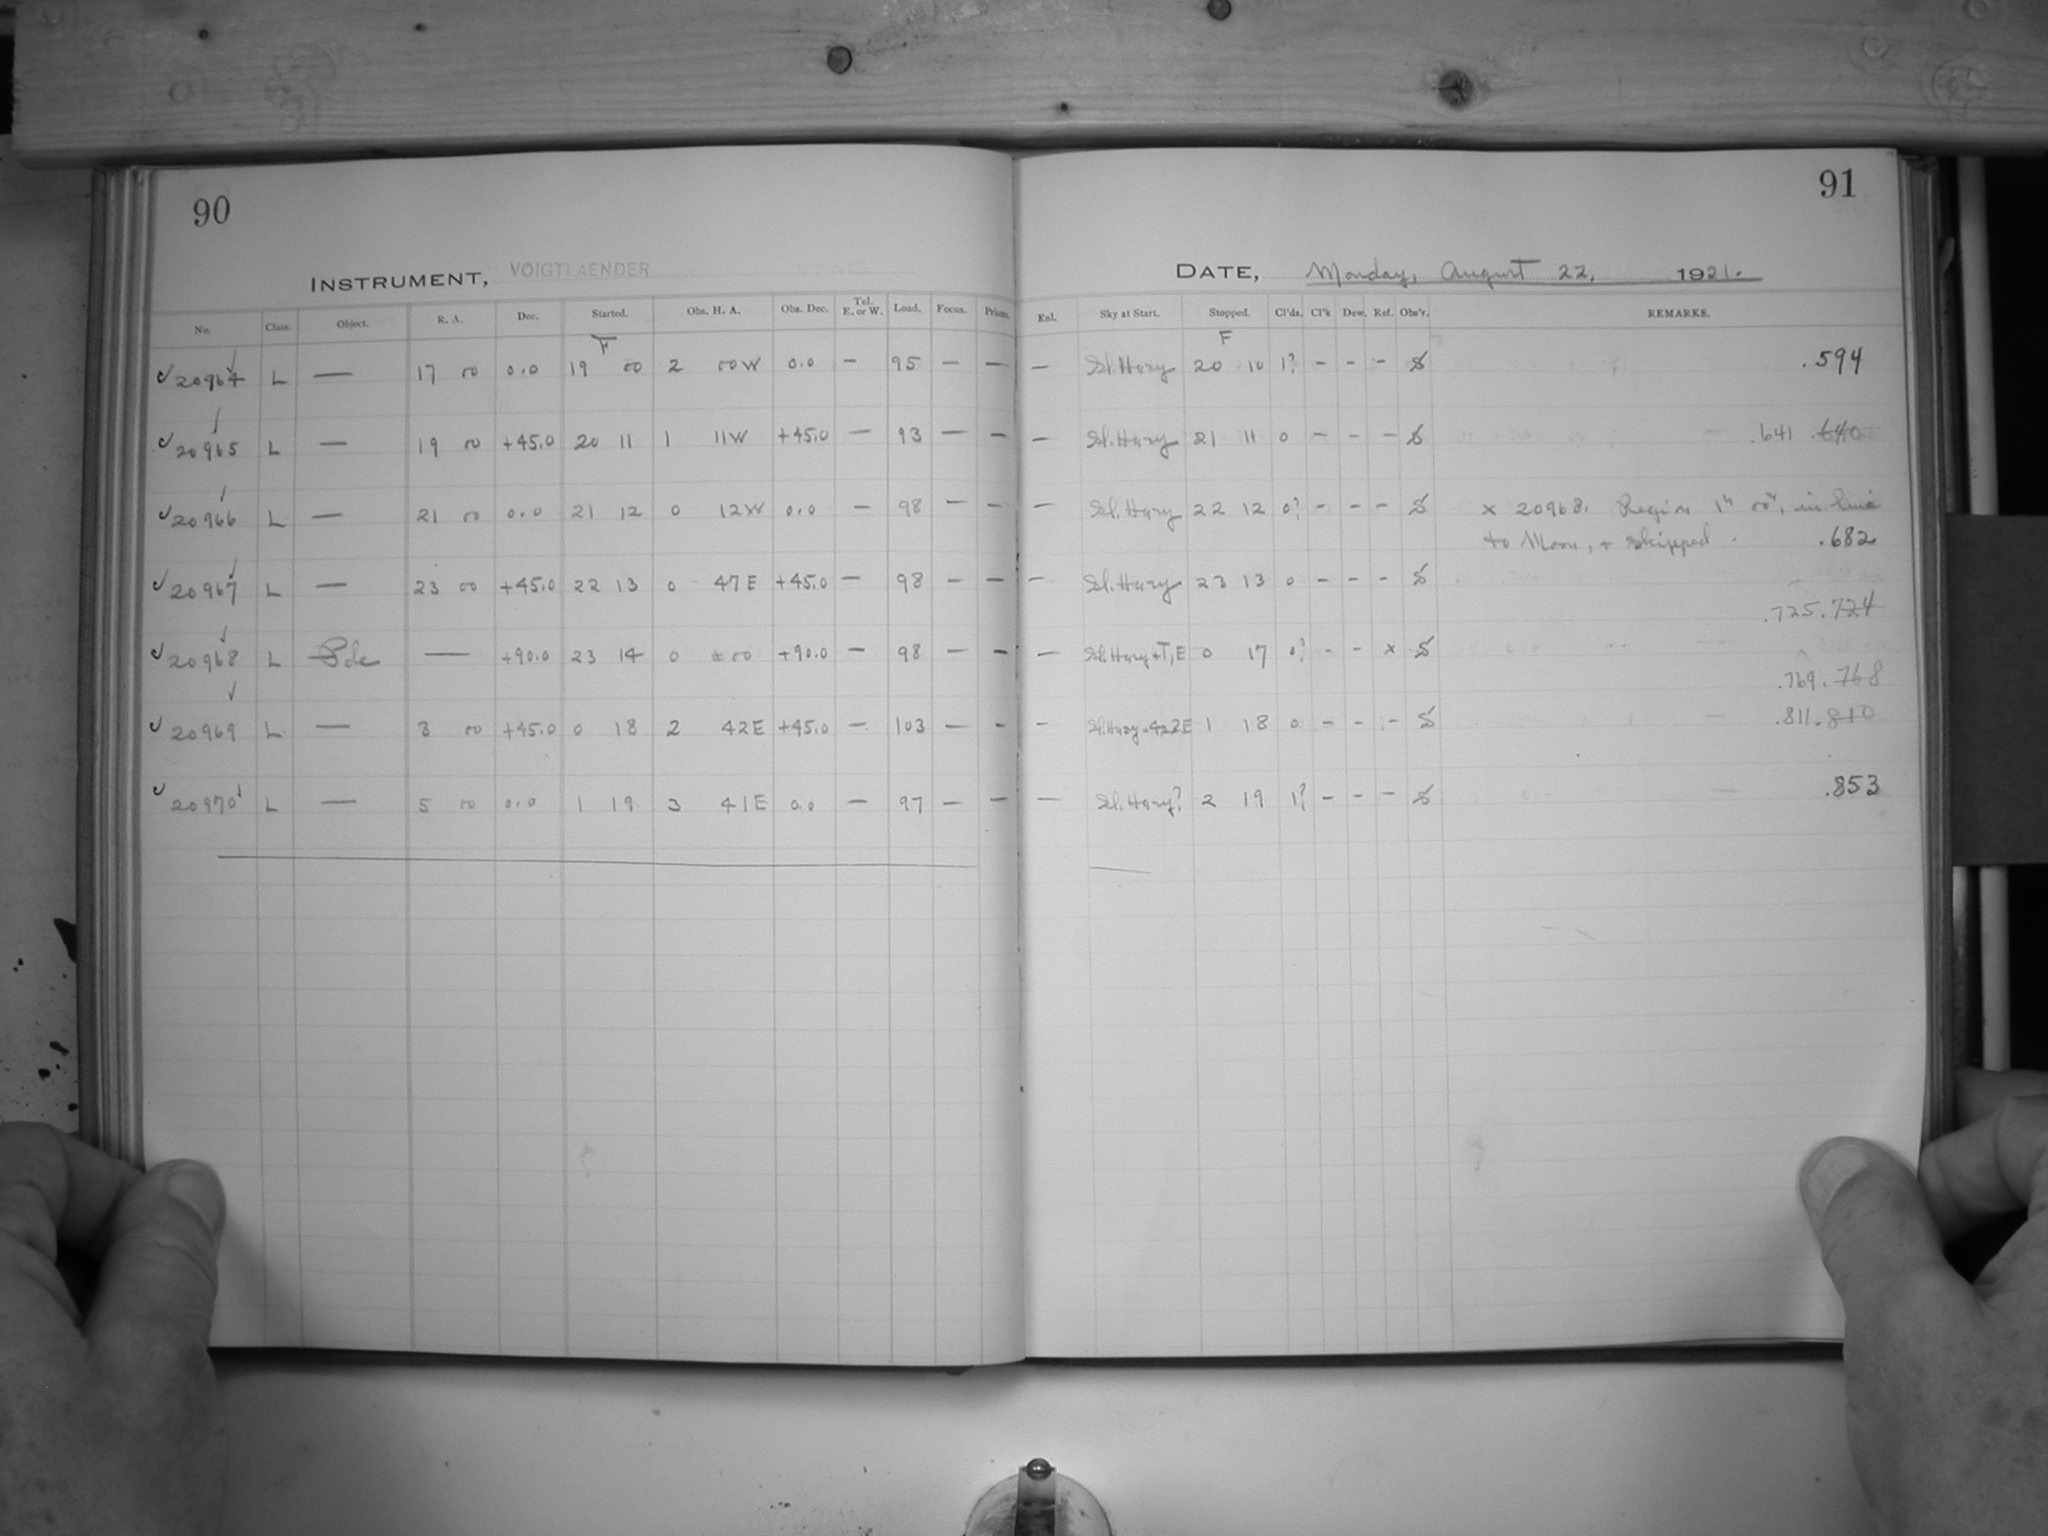 90
91
INSTRUMENT, VOIGTLAENDER
DATE, Monday, August 22, 1921.
No. Class. Object. R. A. Dec. Started. Obs. H. A. Obs. Dec. Tel. E. or W. Load. Focus. Prisms. Enl. Sky at Start. Stopped. Cl'ds. Cl'k Dew. Ref. Obs'r. REMARKS.
F F
20964 L — 17 00 0.0 19 00 2 00W 0.0 — 95 — — — Sl. Hazy 20 10 1? - - - S .594
20965 L — 19 00 +45.0 20 11 1 11W +45.0 — 93 — — — Sl. Hazy 21 11 0 - - - S .641 .640
20966 L — 21 00 0.0 21 12 0 12W 0.0 — 98 — — — Sl. Hazy 22 12 0? - - - S x 20968. Region 1h 00m, in line
to Moon, + skipped. .682
20967 L — 23 00 +45.0 22 13 0 47E +45.0 — 98 — — — Sl. Hazy 23 13 0 - - - S
.725 .724
20968 L Pole — +90.0 23 14 0 ±00 +90.0 — 98 — — — Sl. Hazy + T, E 0 17 0? - - x S
.769 .768
20969 L — 3 00 +45.0 0 18 2 42E +45.0 — 103 — - - Sl. Hazy 1 18 0 - - - S .811 .810
20970 L — 5 00 0.0 1 19 3 41E 0.0 — 97 — — — Sl. Hazy? 2 19 1? - - - S .853